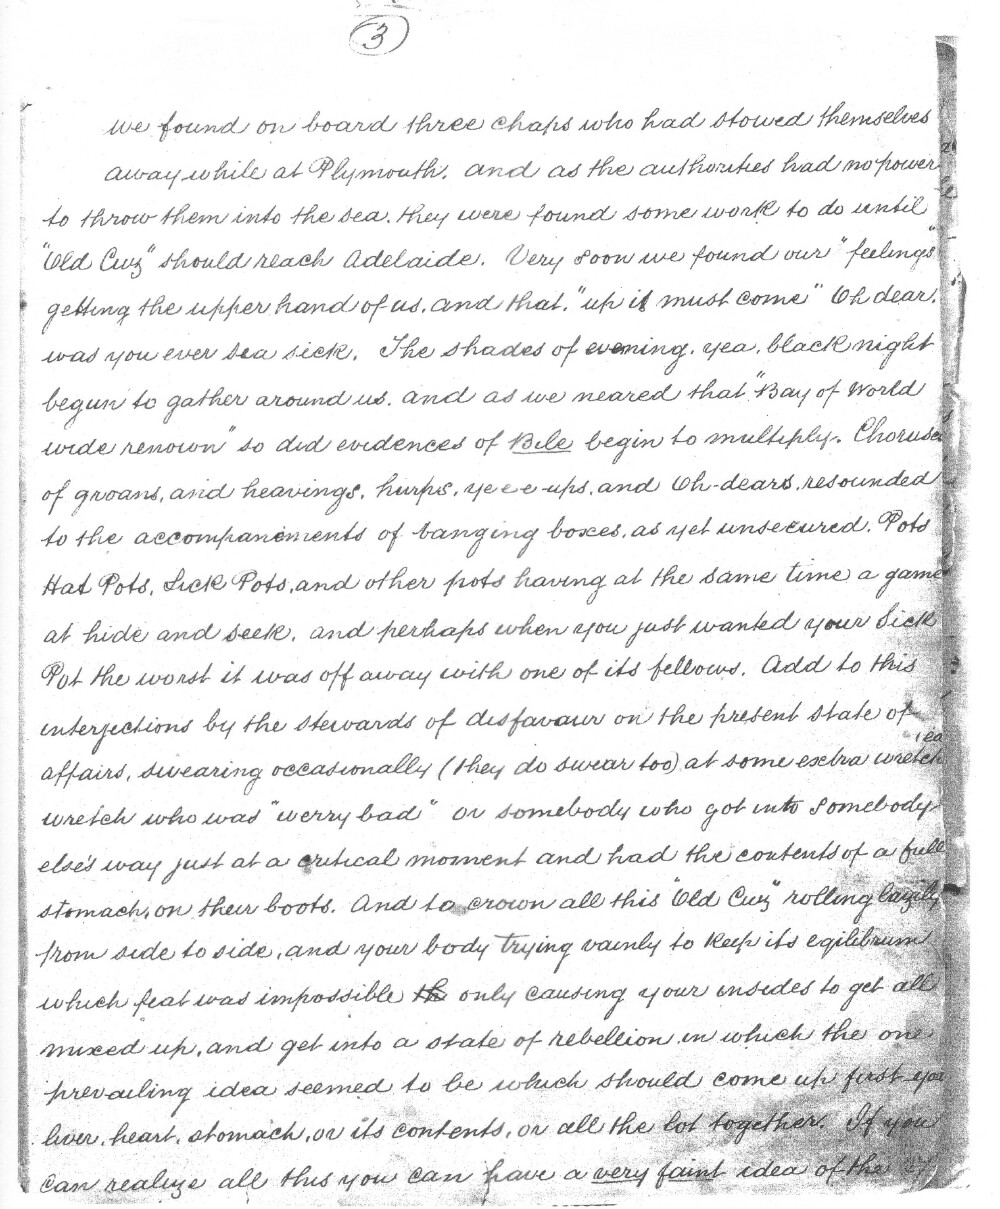 3
we found on board three chaps who had stowed themselves
away while at Plymouth. and as the authorities had no power
to throw them into the sea. they were found some work to do until
"Old Cuz" should reach Adelaide. Very soon we found our "feelings"
getting the upper hand of us. and that. "up it must come" Oh dear.
was you ever sea sick. The shades of evening. yea. black night
begun to gather around us. and as we neared that "Bay of World
wide renown" so did evidences of Bile begin to multiply. Choruses
of groans, and heavings, hurps, yeee-ups, and Oh-dears, resounded
to the accompaniments of banging boxes, as yet unsecured. Pots
Hat Pots, Sick Pots, and other pots having at the same time a game
at hide and seek, and perhaps when you just wanted your Sick
Pot the worst it was off away with one of its fellows. Add to this
interjections by the stewards of disfavour on the present state of
affairs, swearing occasionally (they do swear too) at some extra wretch
wretch who was "werry bad" or somebody who got into somebody
else's way just at a critical moment and had the contents of a full
stomach, on their boots. And to crown all this "Old Cuz" rolling lazily
from side to side, and your body trying vainly to keep its eqilibrum
which feat was impossible th only causing your insides to get all
mixed up, and get into a state of rebellion in which the one
prevailing idea seemed to be which should come up first you
liver, heart, stomach, or its contents, or all the lot together. If you
can realize all this you can have a very faint idea of the